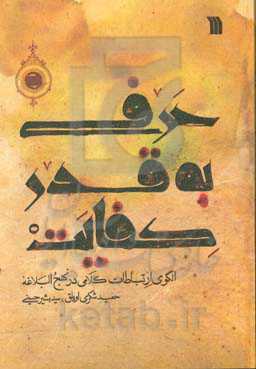 حرفی
به قدر
کفایت
الگوی ارتباطات کلامی در نهج البلاغه
حمید شکری اوریلق، سید بشیر حسینی
ketab.ir